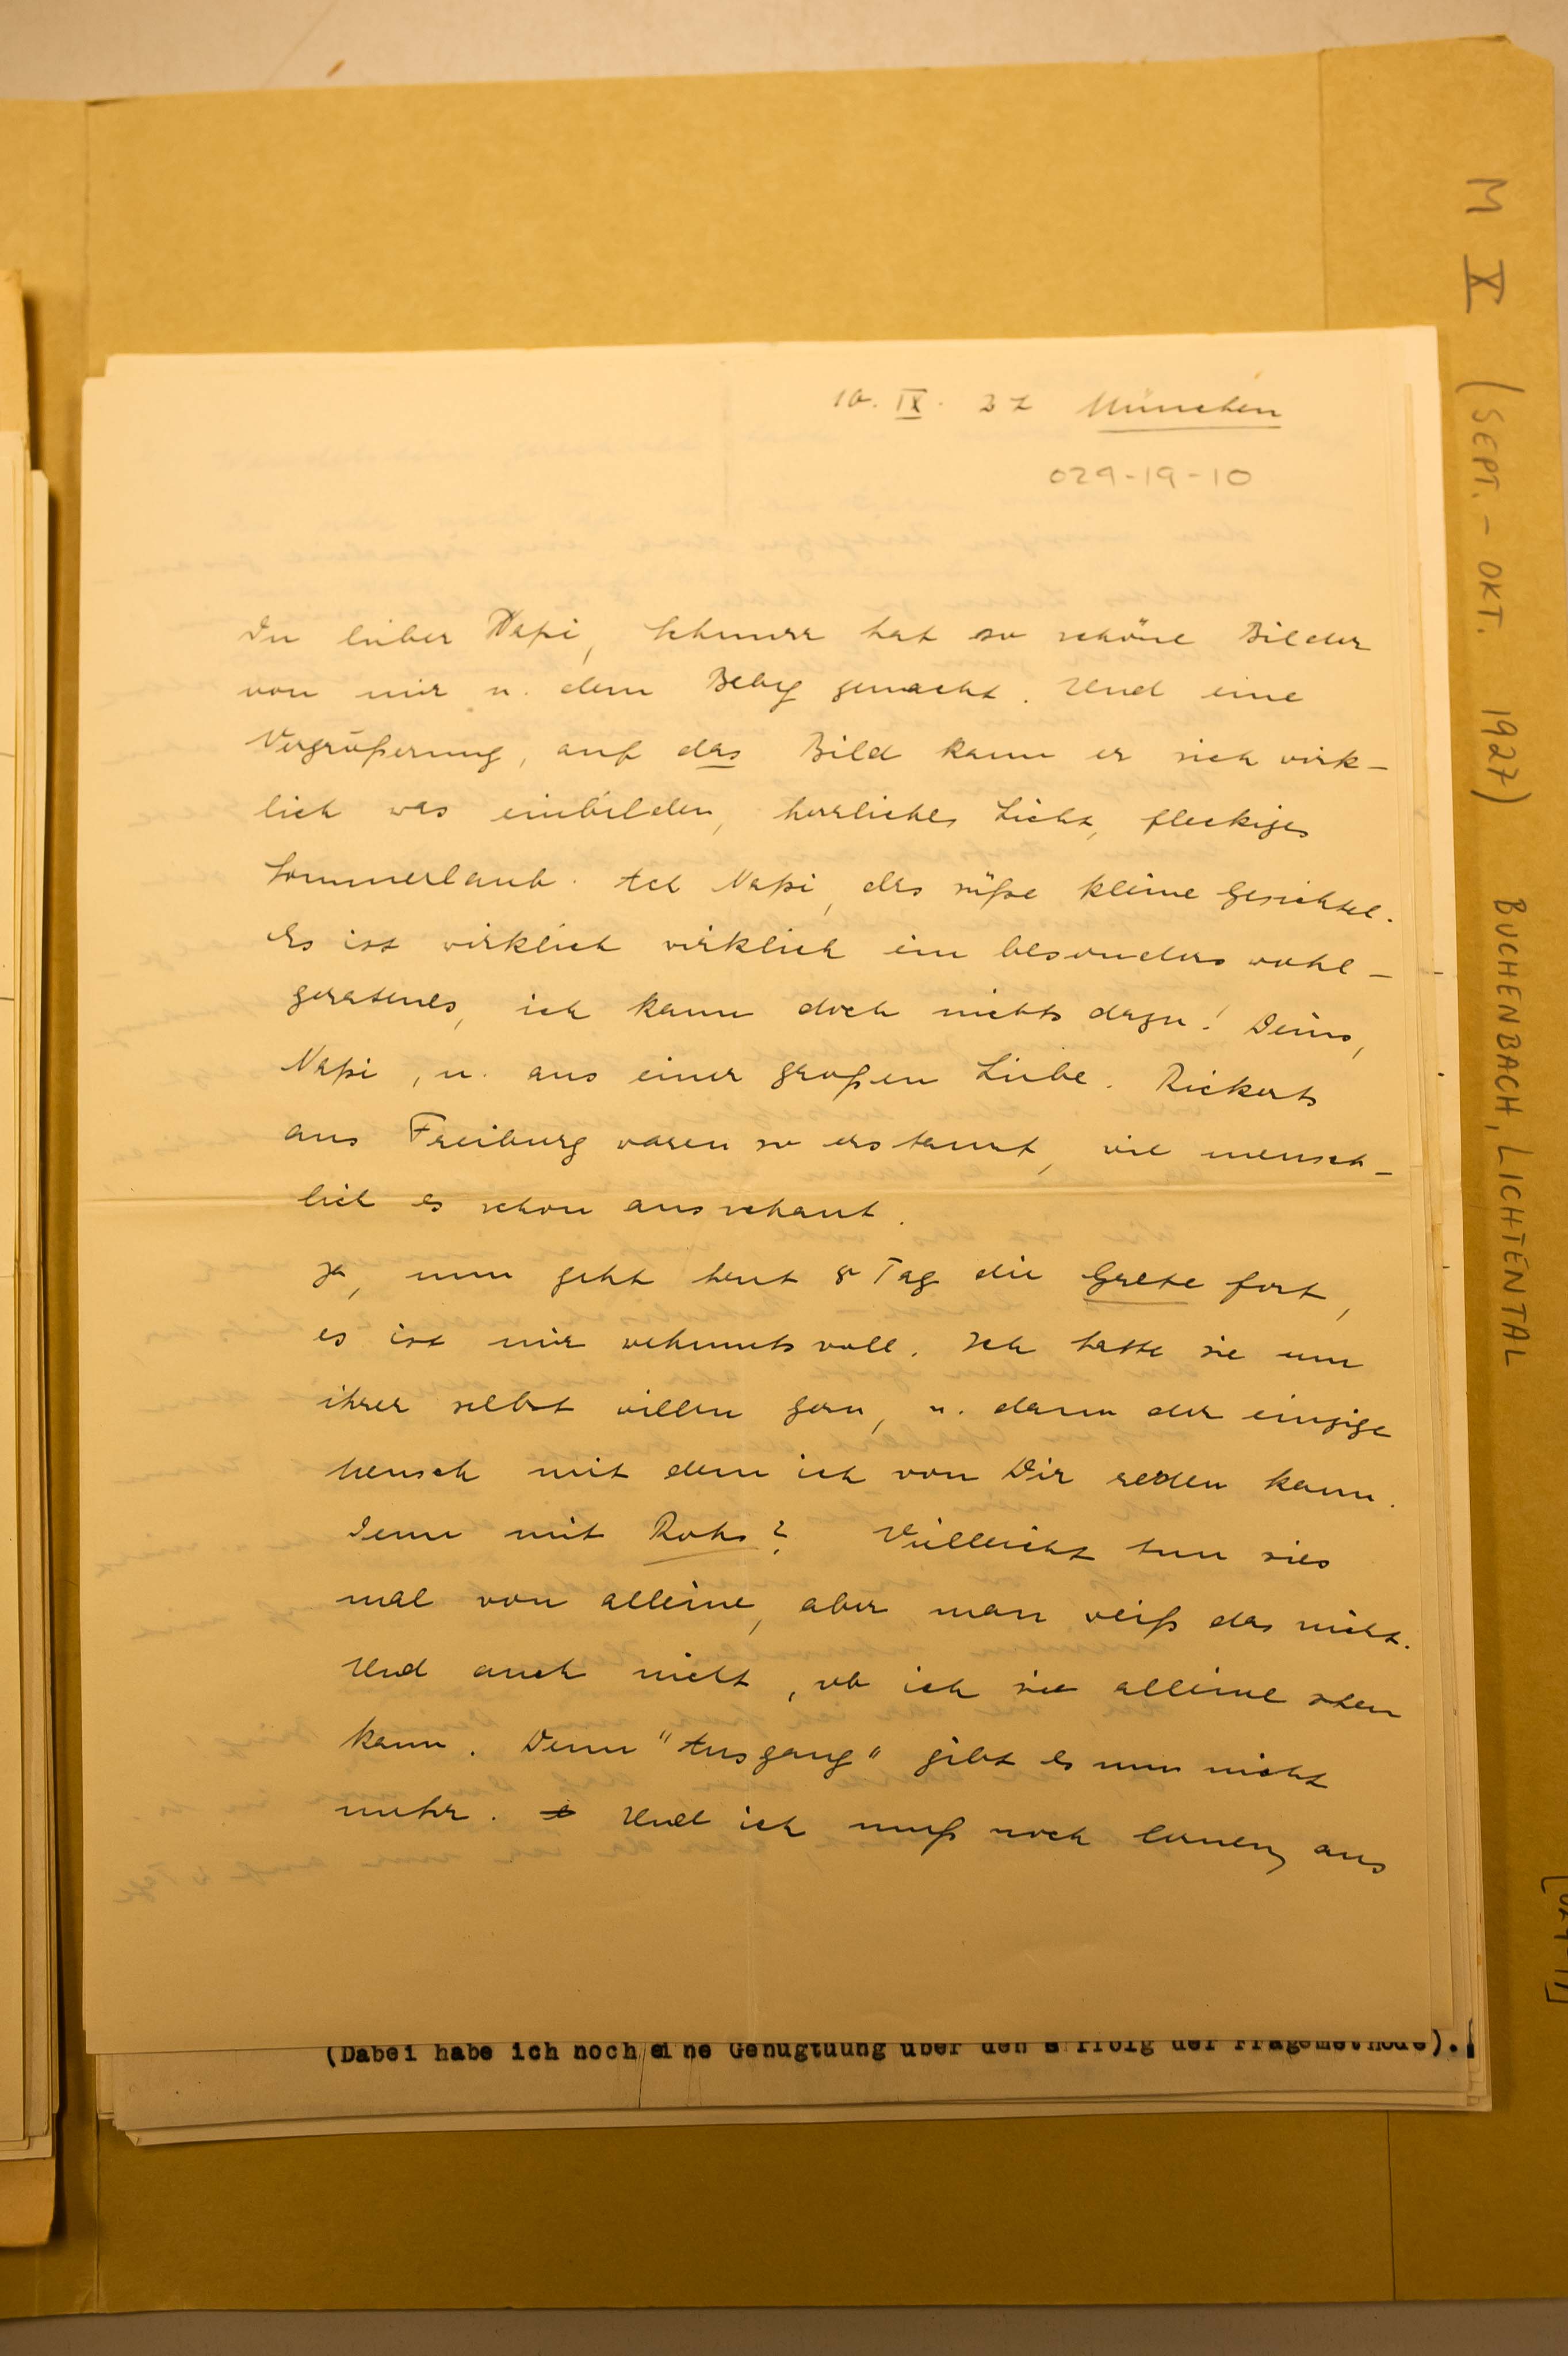 10. IX. 27 München
029-19-10
Du lieber Napi, Schnurr hat so schöne Bilder
von mir u. dem Beby gemacht. Und eine
Vergrößerung, auf das Bild kann er sich wirk-
lich was einbilden, herrliches Licht, fleckiges
Sommerlaub. Ach Napi, das süße kleine Gesichtel.
Es ist wirklich wirklich ein besonders wohl-
geratenes, ich kann doch nichts dazu! Deins,
Napi, u. aus einer großen Liebe. Rickerts
aus Freiburg waren so erstaunt, wie mensch-
lich es schon ausschaut.
Ja, nun geht heut 8 Tag die Grete fort,
es ist mir wehmutsvoll. Ich hatte sie um
ihrer selbst willen gern, u. dann der einzige
Mensch mit dem ich von Dir reden kann.
Denn mit Rohs? Vielleicht tun sies
mal von alleine, aber man weiß das nicht.
Und auch nicht, ob ich sie alleine sehen
kann. Denn "Ausgang" gibt es nun nicht
mehr. Und ich muß noch lernen, aus
(Dabei habe ich noch eine Genugtuung über den Erfolg der Fragemethode).
M X (SEPT. - OKT. 1927) BUCHENBACH, LICHTENTAL